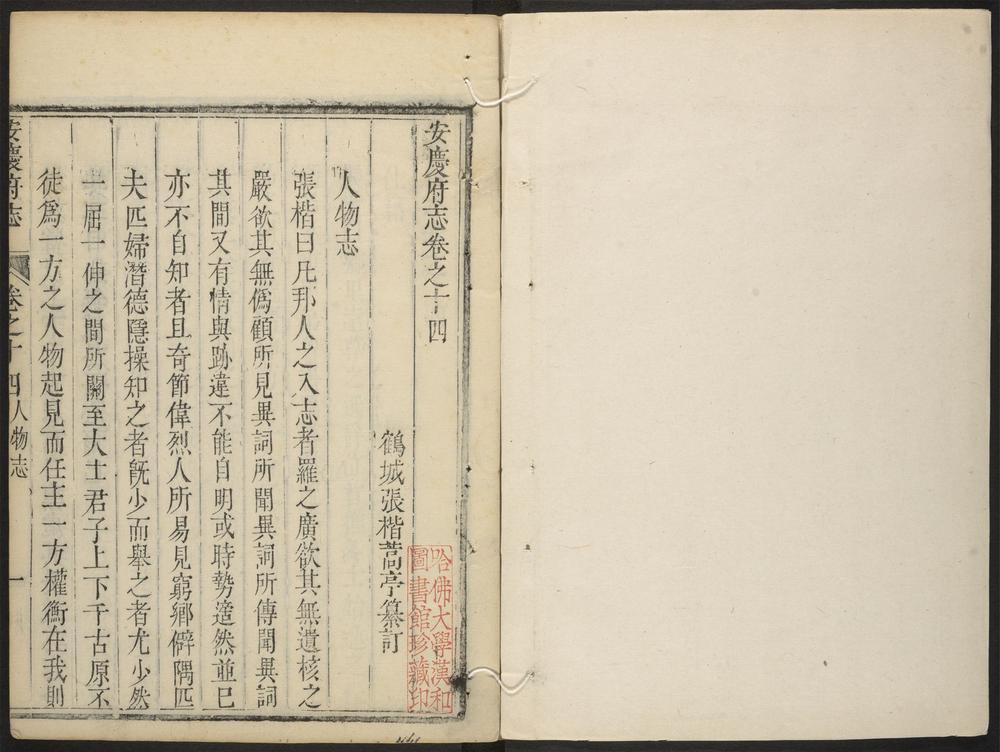 安慶府志卷之十四
鶴城張楷蒿亭纂訂
人物志
張楷曰凡邦人之入志者羅之廣欲其無遺核之
嚴欲其無偽顧所見異詞所聞異詞所傳聞異詞
其間又有情與跡違不能自明或時勢適然並已
亦不自知者且奇節偉烈人所易見窮鄉僻隅匹
夫匹婦潛德隱操知之者旣少而舉之者尤少然
一屈一伸之間所關至大士君子上下千古原不
徒爲一方之人物起見而任主一方權衡在我則
安慶府志
卷之十四人物志
一
哈佛大學漢和
圖書館珍藏印